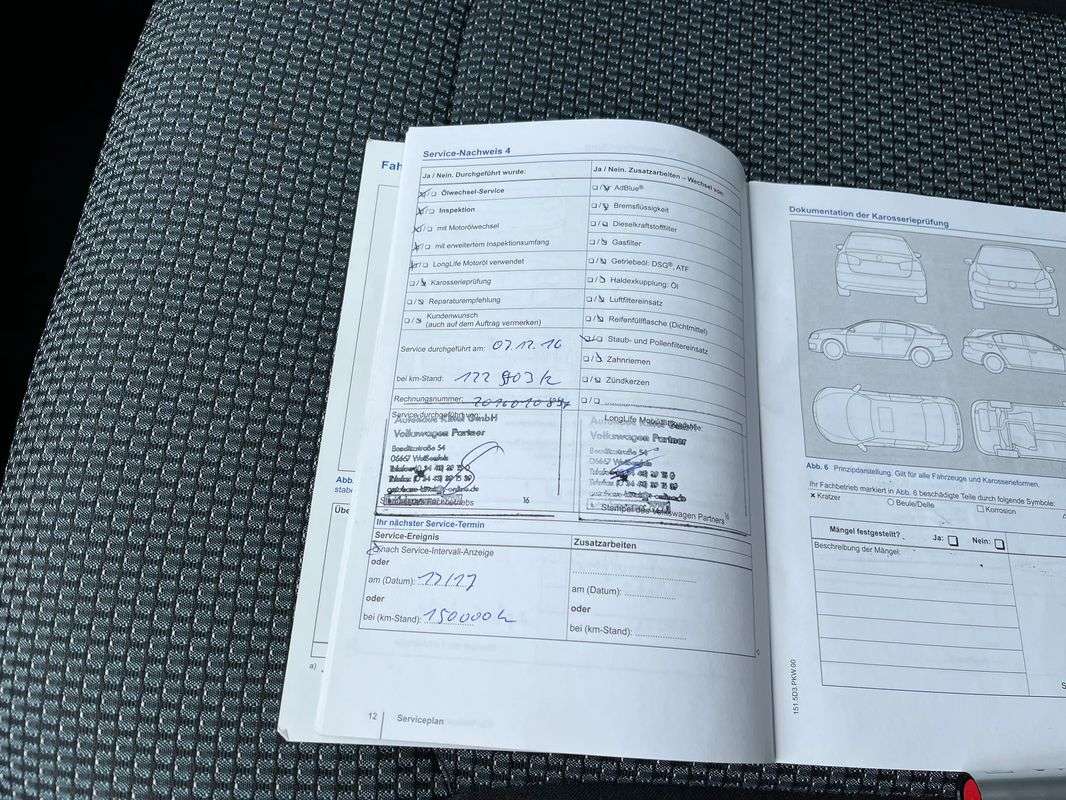 Fah
Service-Nachweis 4
Ja / Nein. Durchgeführt wurde:
Ölwechsel-Service
Inspektion
mit Motorölwechsel
mit erweitertem Inspektionsumfang
LongLife Motoröl verwendet
Karosserieprüfung
Reparaturempfehlung
Kundenwunsch
(auch auf dem Auftrag vermerken)
Service durchgeführt am: 07.12.16
bei km-Stand: 122 903 k
Rechnungsnummer:
Service durchgeführt von:
GmbH
Volkswagen Partner
54
06667 Weißenfels
Stempel des Fachbetriebs
16
Ja / Nein. Zusatzarbeiten – Wechsel von:
AdBlue®
Bremsflüssigkeit
Dieselkraftstofffilter
Gasfilter
Getriebeöl: DSG®, ATF
Haldexkupplung: Öl
Luftfiltereinsatz
Reifenfüllflasche (Dichtmittel)
Staub- und Pollenfiltereinsatz
Zahnriemen
Zündkerzen
LongLife
Volkswagen Partner
54
06667
Stempel des Volkswagen Partners
16
Ihr nächster Service-Termin
Service-Ereignis
nach Service-Intervall-Anzeige
oder
am (Datum): 12/17
oder
bei (km-Stand): 150000 k
Zusatzarbeiten
am (Datum):
oder
bei (km-Stand):
12 Serviceplan
Abb.
stabe
Übe
a)
Dokumentation der Karosserieprüfung
Abb. 6 Prinzipdarstellung. Gilt für alle Fahrzeuge und Karosserieformen.
Ihr Fachbetrieb markiert in Abb. 6 beschädigte Teile durch folgende Symbole:
× Kratzer
○ Beule/Delle
□ Korrosion
Mängel festgestellt? Ja: Nein:
Beschreibung der Mängel:
S
151.5D3.PKW.00